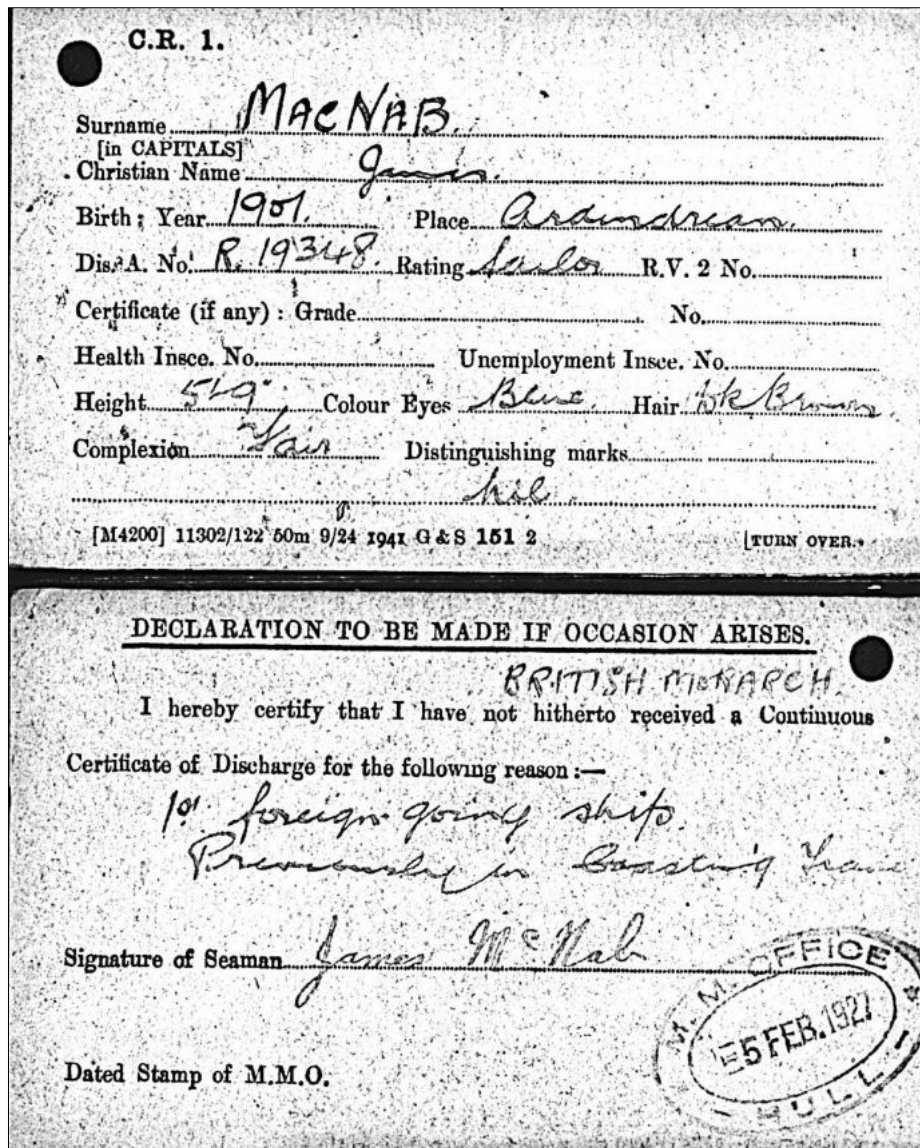 C.R. 1.
Surname MACNAB.
[in CAPITALS]
Christian Name James.
Birth: Year 1901. Place Ardindrean.
Dis. A. No. R. 19348. Rating Sailor R.V. 2 No.
Certificate (if any) : Grade No.
Health Insce. No. Unemployment Insce. No.
Height 5'-9" Colour Eyes Blue. Hair Dk Brown.
Complexion Fair Distinguishing marks
Nil.
[M4200] 11302/122 50m 9/24 1941 G & S 151 2 [TURN OVER.
DECLARATION TO BE MADE IF OCCASION ARISES.
BRITISH MONARCH.
I hereby certify that I have not hitherto received a Continuous
Certificate of Discharge for the following reason :—
foreign going ship.
Previously in Coasting
Signature of Seaman James McNab
M.M. OFFICE
5 FEB. 1927
HULL
Dated Stamp of M.M.O.